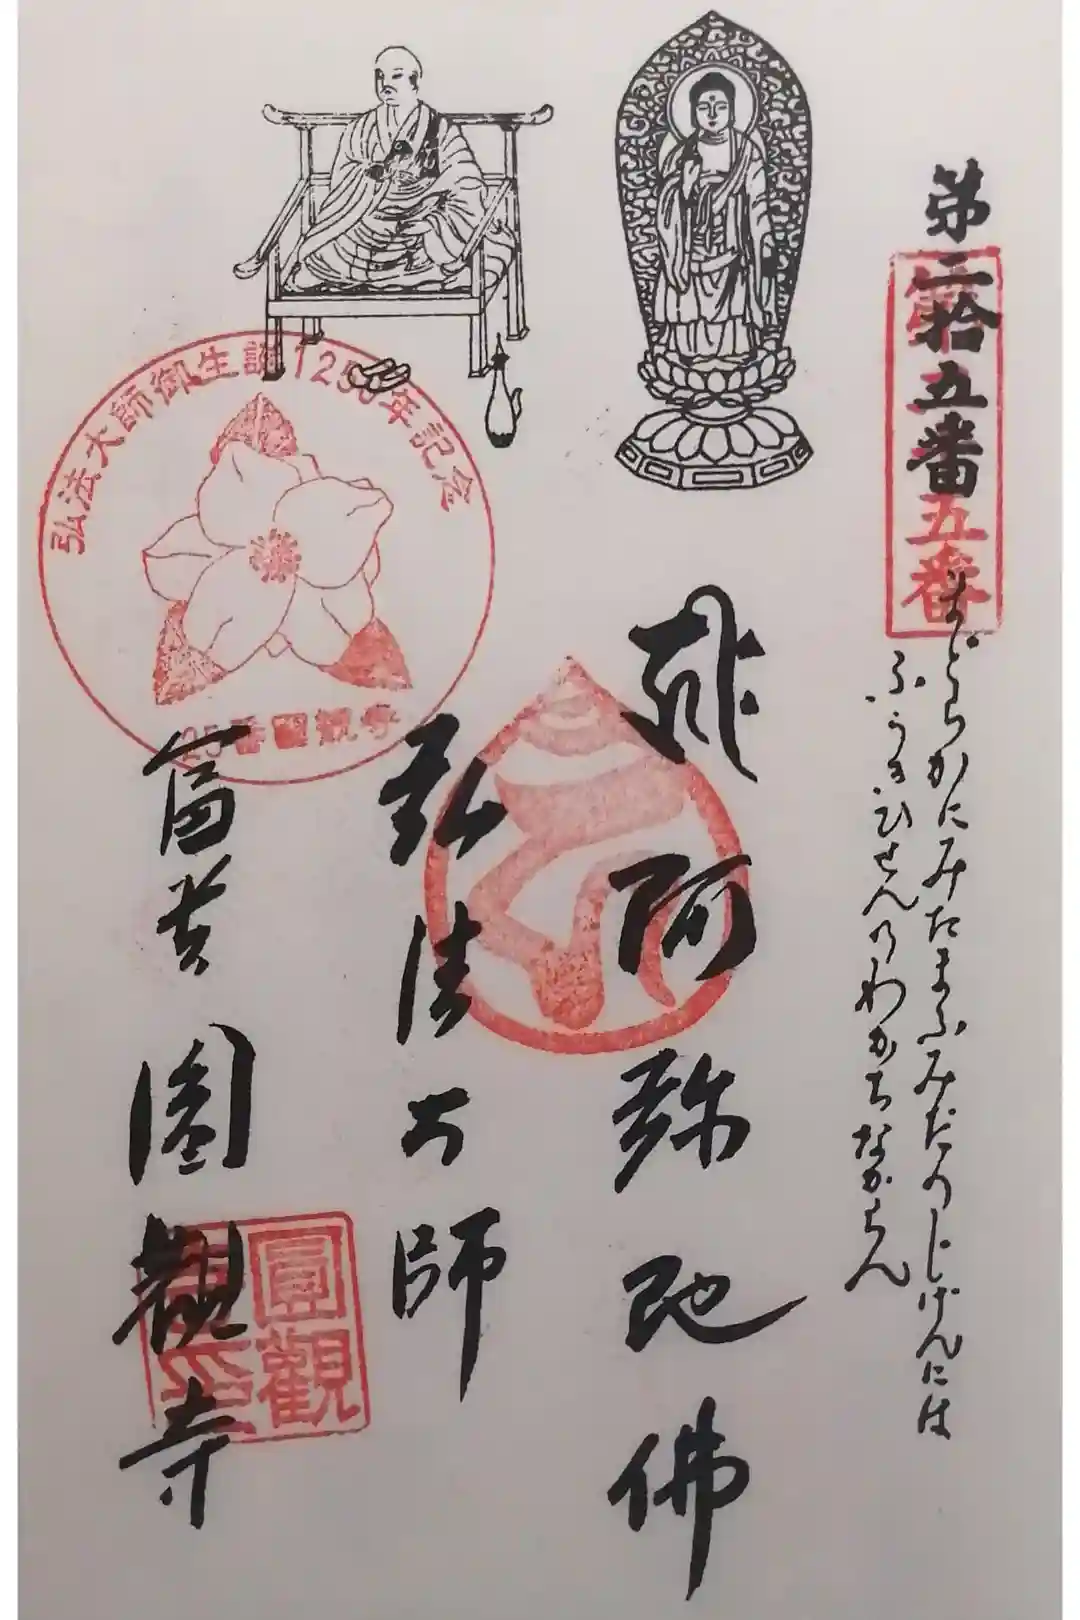 第二拾五番
まどらかにみたまふみだのじげんには
ふうきひせんのわかちなからん
阿弥陀佛
弘法大師
富貴 圓觀寺
弘法大師御生誕1250年記念
25番圓観寺
五番
圓觀